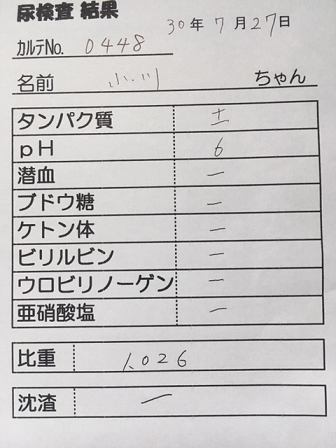 尿検査 結果 30年7月27日
カルテNo. 0448
名前 小川 ちゃん
タンパク質 ±
pH 6
潜血 ー
ブドウ糖 ー
ケトン体 ー
ビリルビン ー
ウロビリノーゲン ー
亜硝酸塩 ー
比重 1.026
沈渣 ー